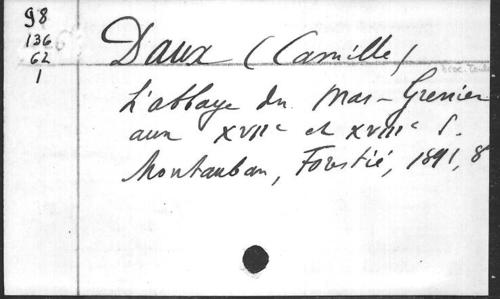 98
136
62
1
Daux (Camille)
L'abbaye du Mas-Grenier
aux XVIIe et XVIIIe s.
Montauban, Forestié, 1891, 8